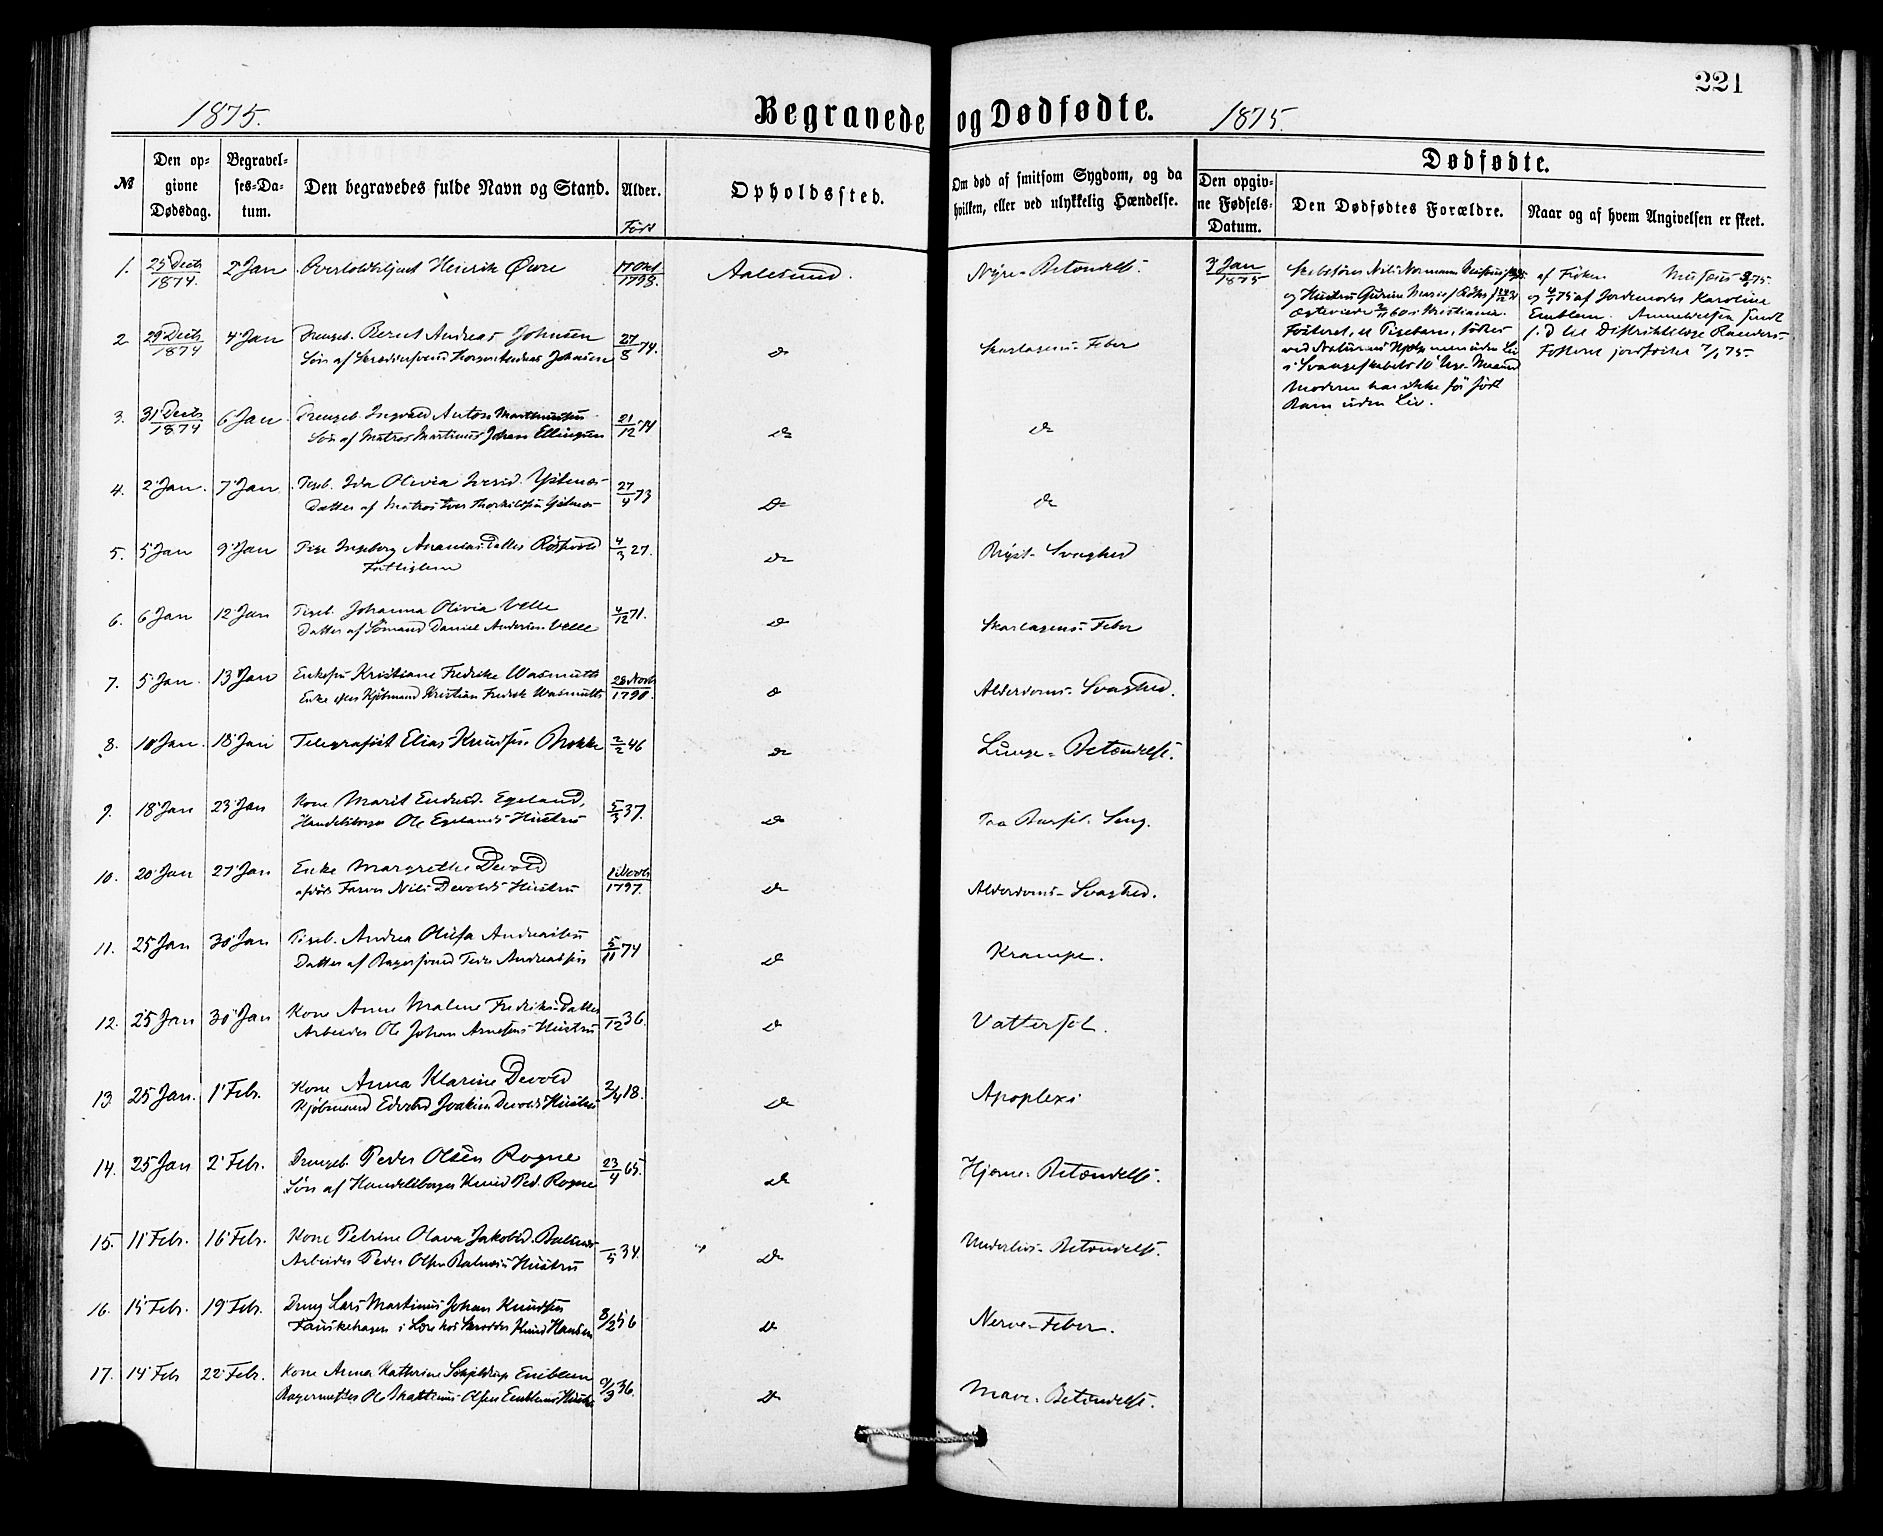 221
1875. Begravede og Dødfødte. 1875.
№ Den opgivne Dødsdag. Begravelses-Datum. Den begravedes fulde Navn og Stand. Alder. Født Opholdssted. Om død af smitsom Sygdom, og da hvilken, eller ved ulykkelig Hændelse.
Dødfødte.
Den opgivne Fødsels-Datum. Den Dødfødtes Forældre. Naar og af hvem Angivelsen er skeet.
1. 25 Decb 1874. 2 Jan Henrik Øvre 17 Okt Aalesund. Nyre-Betændelse.
2 29 Decb 1874 4 Jan Drengeb. Bernt Andreas Johnsen 27/8 74. do Skarlagens-Feber
Søn af Andreas Johnsen
3. 31 Decb 1874 6 Jan Drengeb. Ingvald Anton Martinussen 21/12 74 do do
Søn af Matros Martinus Johan Ellingsen
4. 2 Jan. 7 Jan. Pigeb. Ida Olivia 27/4 73 do do
Datter af Matros Iver
5. 5 Jan 9 Jan Pige Ingeborg Ananias Datter 4/3 27. do Bryst-Svaghed
Fattiglem
6. 6 Jan 12 Jan Pigeb. Johanna Olivia Velle 4/12 71. do Skarlagens-Feber
Datter af Sømand Daniel Andersen Velle
7. 5 Jan. 13 Jan Enkefru Kristiane Fredrikke Wasmuth do Alderdoms-Svaghed.
Enke efter Kjøbmand Kristian Fredrik Wasmuth
8. 10 Jan. 18 Jan Telegrafist Elias Knudsen 2/2 46 do Lunge-Betændelse.
9. 18 Jan 23 Jan Kone Marit Endresd. Egeland, 5/3 37. do Paa Barsel-Seng.
Handelsborger Ole Egelands Hustru
10. 20 Jan 27 Jan Enke Margrethe Devold 1797. do Alderdoms-Svaghed.
afdøde Farver Nils Devolds Hustru
11. 25 Jan 30 Jan Pigeb. Andrea Olufa Andreassen 5/11 74 do Krampe.
Datter af Bagersvend Peder Andreassen
12. 25 Jan 30 Jan Kone Anne Malene Fredriks-Datter /12 36. do Vattersot.
Arbeider Ole Johan Arnesens Hustru
13. 25 Jan. 1 Febr. Kone Anna Klarine Devold 2/4 18. do Apoplexi
Kjøbmand Edvard Joakim Devolds Hustru
14. 25 Jan 2 Febr. Drengeb. Peder Olsen Rogne 23/4 65. do Hjerne-Betændelse.
Søn af Handelsborger Knud Ped. Rogne
15. 11 Febr. 16 Febr. Kone Petrine Olava Jakobsd. /5 34. do Underlivs-Betændelse.
Arbeider Peder Olsen Hustru
16. 15 Febr. 19 Febr. Dreng Lars Martinus Johan Knudsen 8/2 56 do Nerve-Feber.
i Lære hos Skrædder Knud Hansen
17. 14 Feb 22 Febr. Kone Anna Kathrine Emblem 9/3 36. do Mave-Betændelse.
Bagermester Ole Olsen Emblems Hustru
3 Jan 1875
og Hustru Gurine Marie
i Kristiania.
Fosteret, et Pigebarn, fødtes
ved Naturens Hjælp men uden Liv
Moderen har ikke før født
Barn uden Liv.
af Jordemoder Karoline
Emblem. Anmeldelsen sendt
s. d. til Distriktslæge
Fosteret jordfæstet 7/1 75.